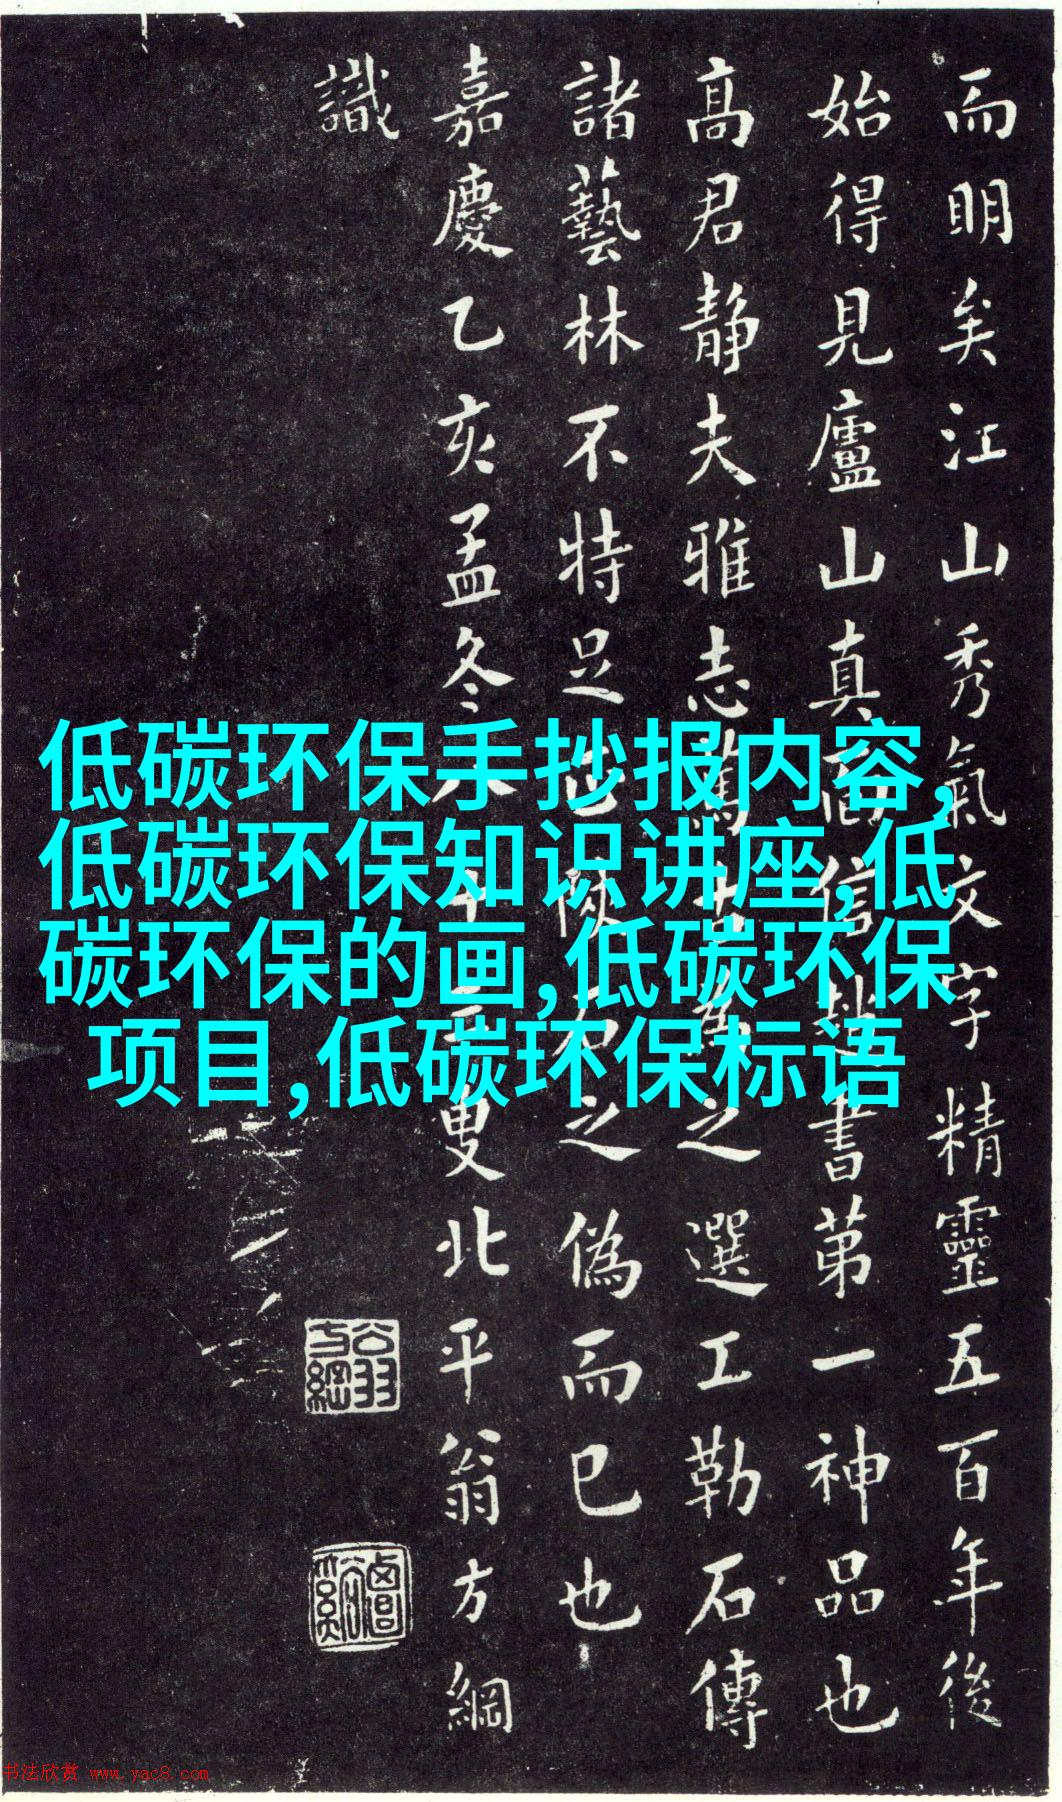 而明矣江山秀氣文字精靈五百年後
始得見廬山真信書第一神品也
高君静夫雅志之選工勒石傳
諸藝林不特足之偽而已也
嘉慶乙亥孟冬叟北平翁方綱
識
翁方綱
低碳环保手抄报内容,
低碳环保知识讲座,低
碳环保的画,低碳环保
项目,低碳环保标语
书法欣赏 www.yac8.com